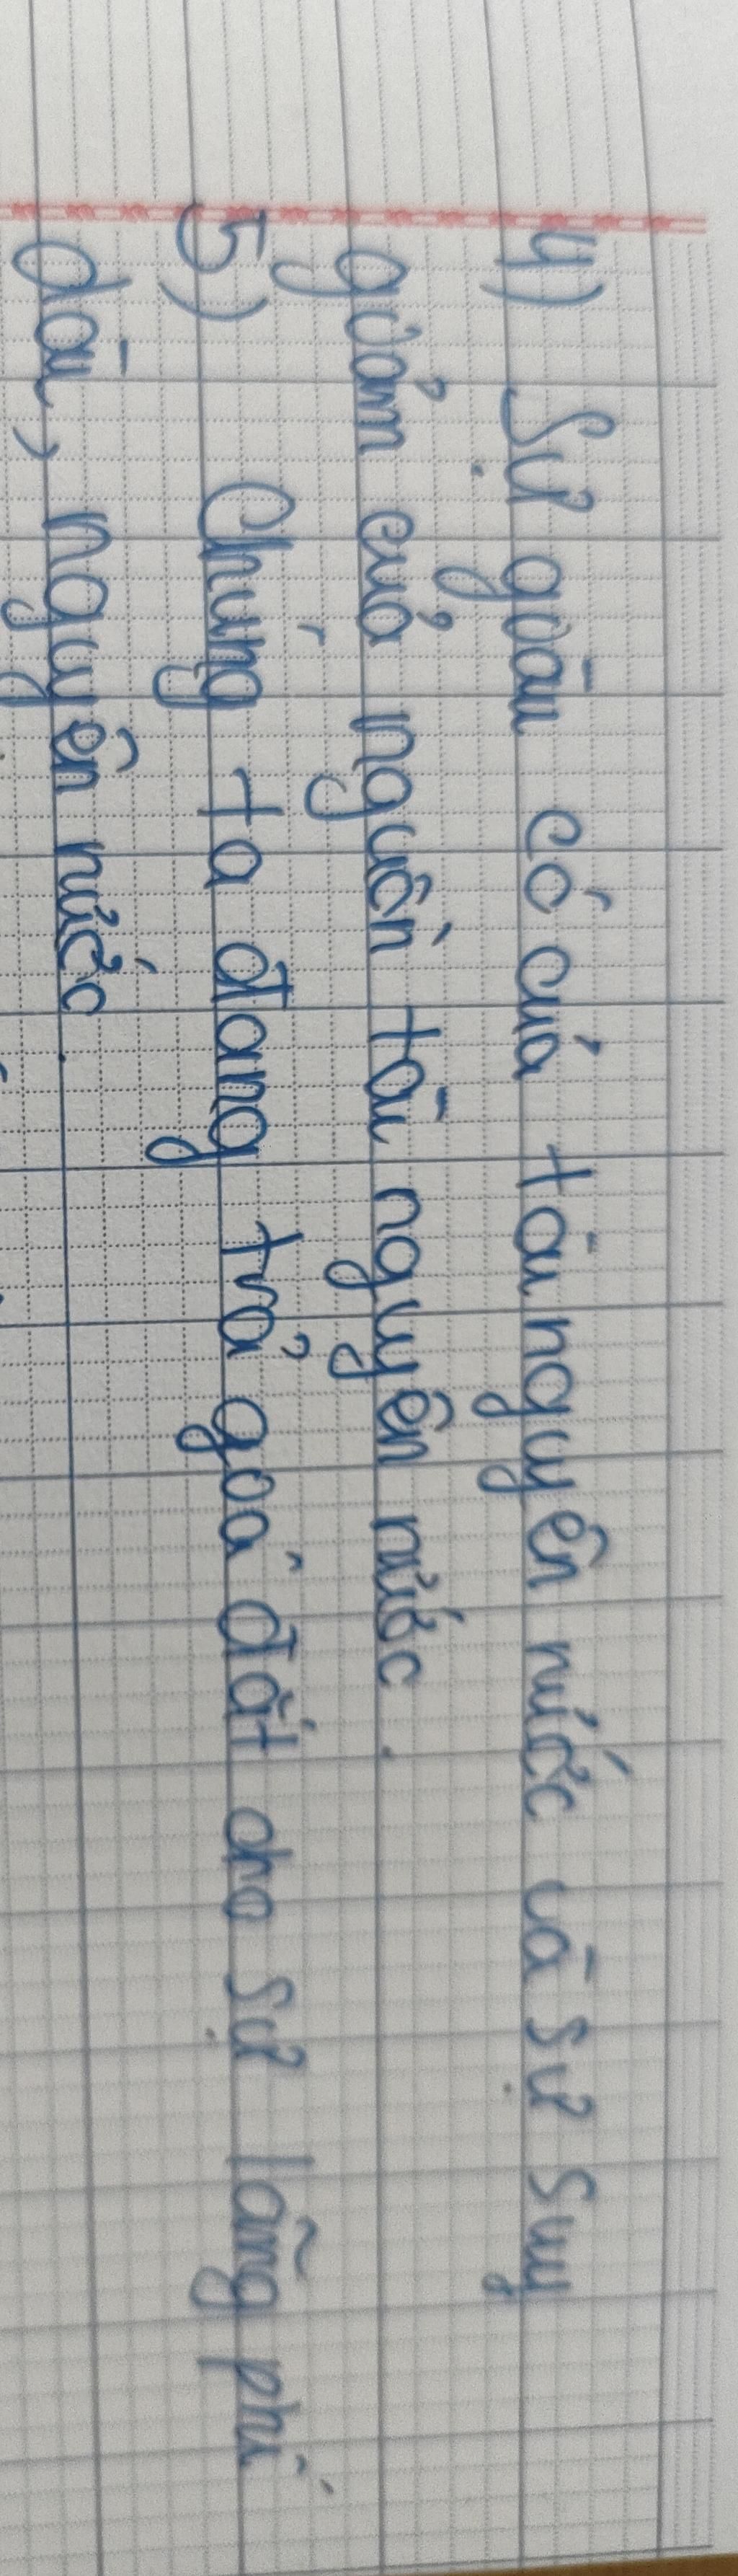 4) Sự giàu có của tài nguyên nước và sự suy
giảm của nguồn tài nguyên nước.
5) Chúng ta đang trả giá đắt cho sự lãng phí
dài, nguyên nước.